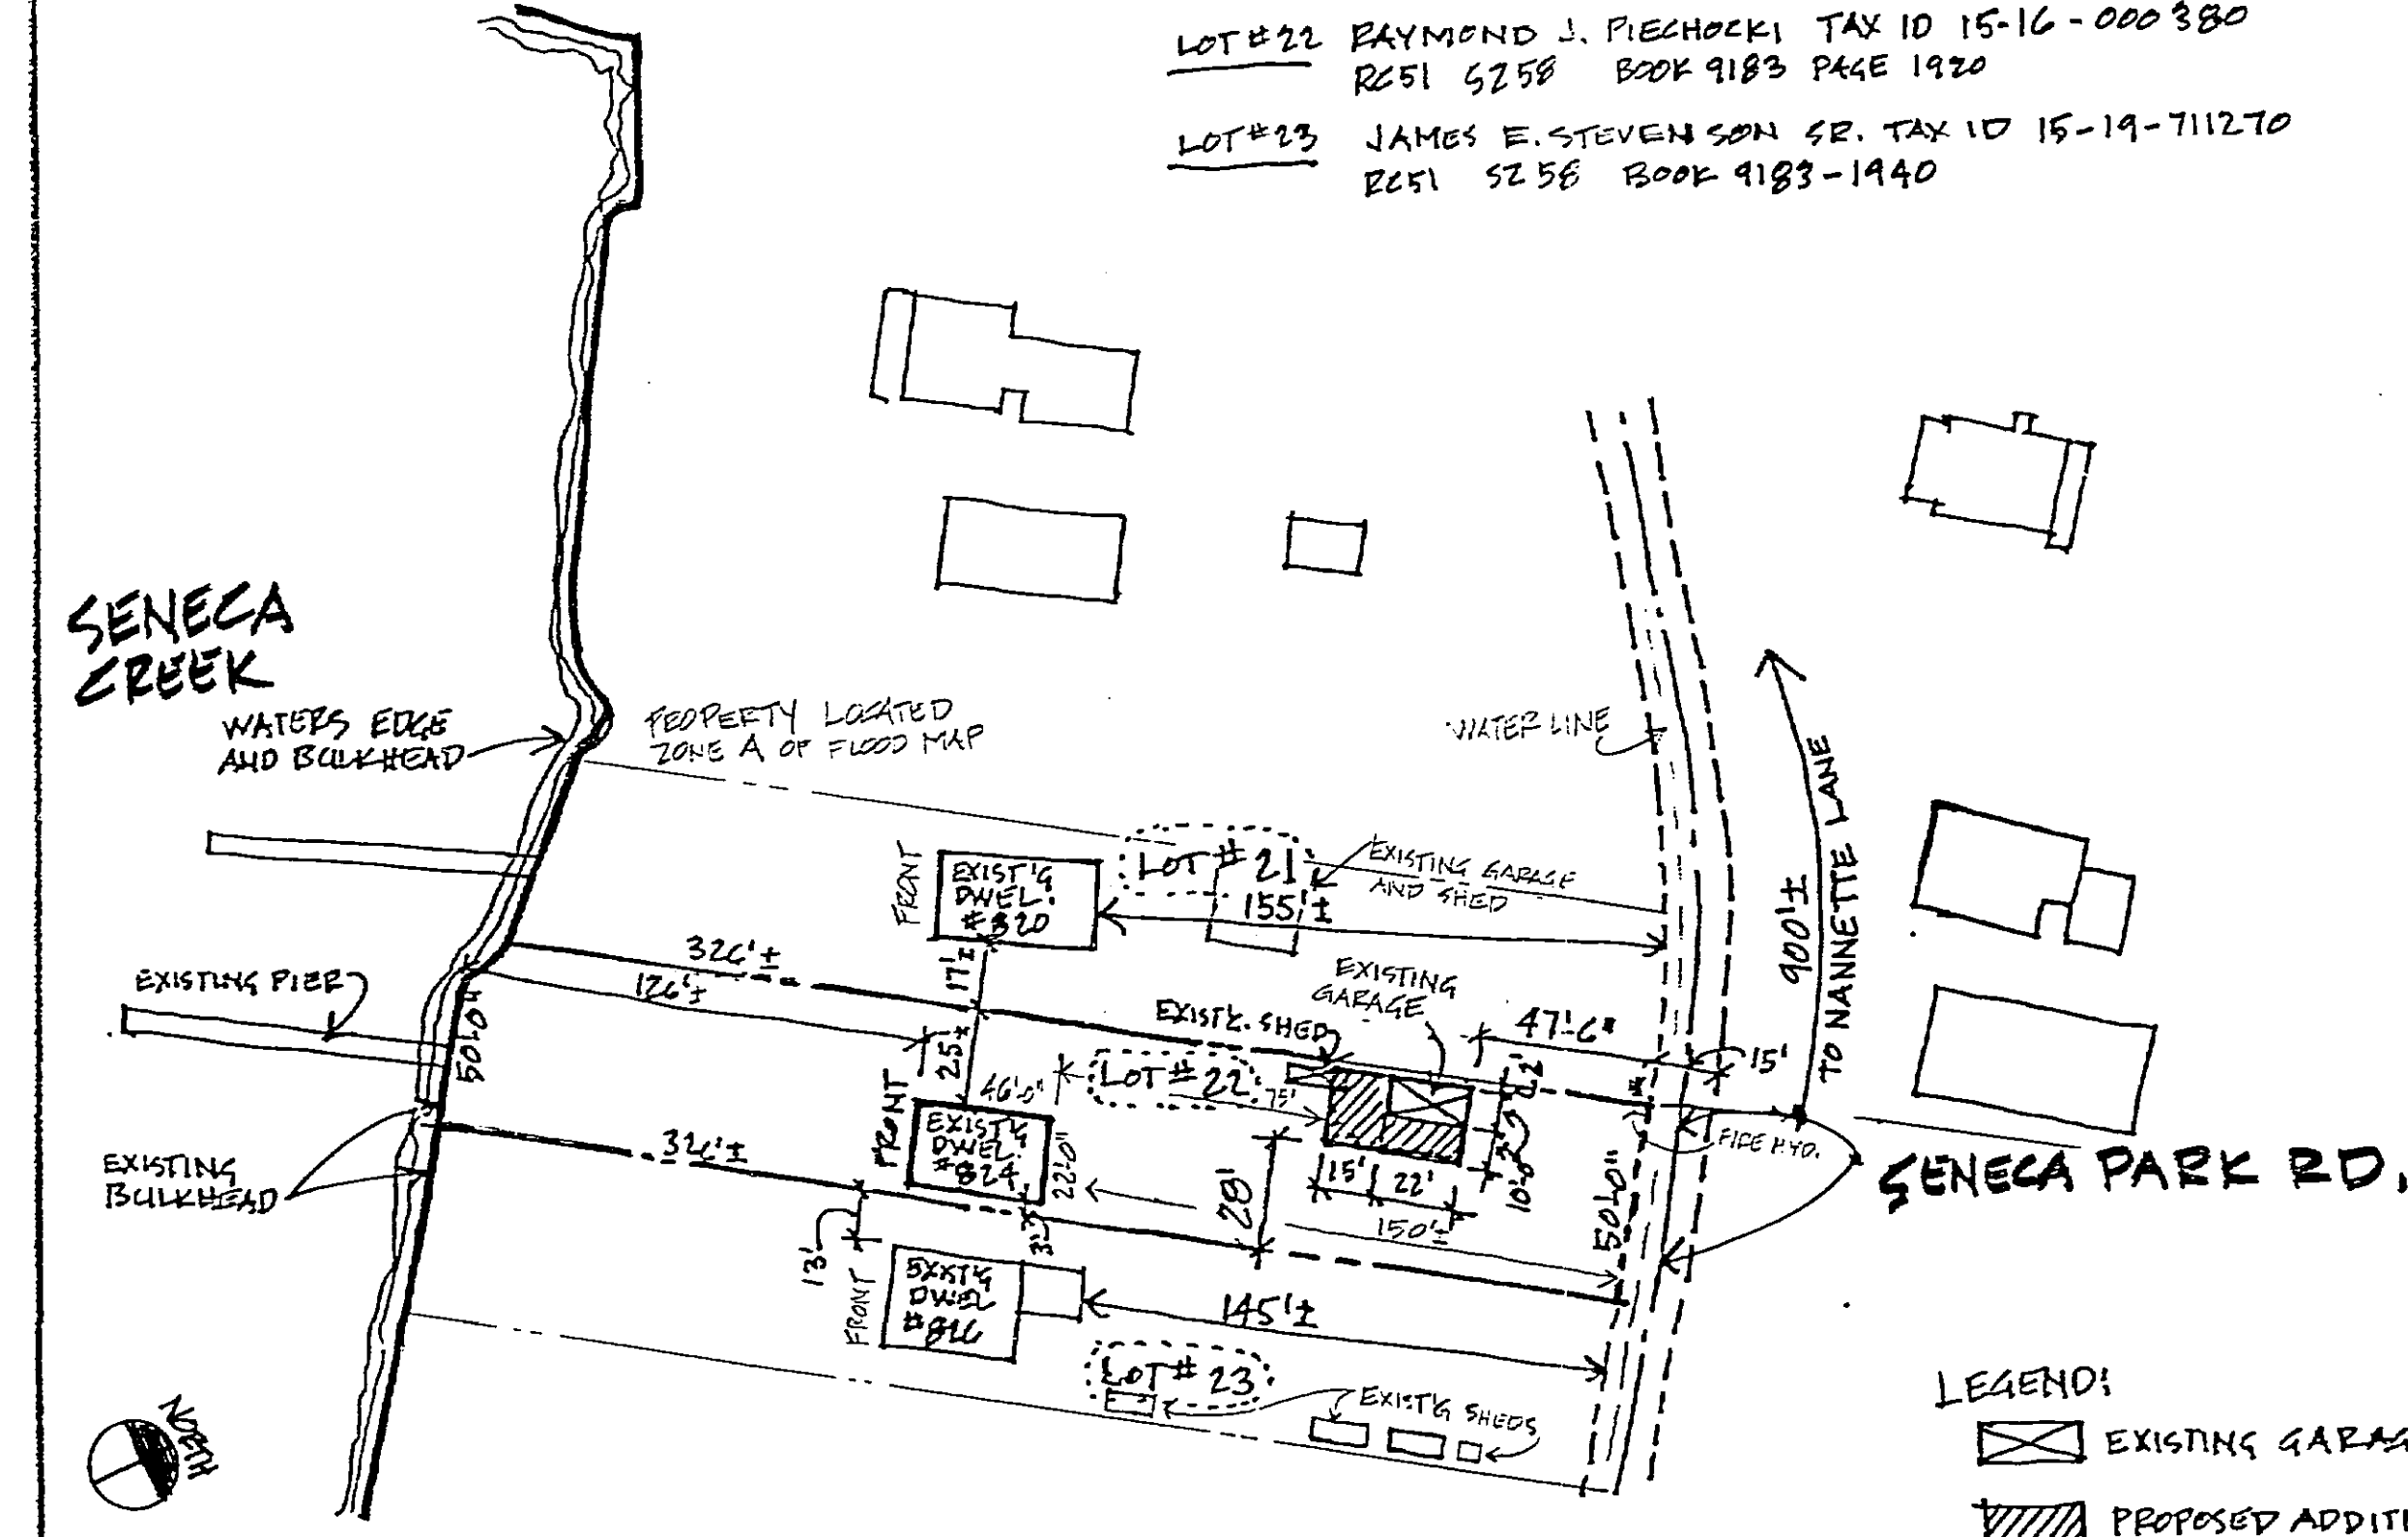 LOT #22 RAYMOND J. PIECHOCKI TAX ID 15-16-000380
RC51 5258 BOOK 9183 PAGE 1920
LOT #23 JAMES E. STEVENSON SR. TAX ID 15-19-711270
RC51 5258 BOOK 9183-1940
SENECA
CREEK
WATERS EDGE
AND BULKHEAD
PROPERTY LOCATED
ZONE A OF FLOOD MAP
WATER LINE
900'±
TO NANNETTE LANE
FRONT
EXIST'G
DWEL.
#820
LOT # 21
EXISTING GARAGE
AND SHED
155'±
326'±
126'±
17'±
EXISTING PIER
50'-0"
25'±
EXIST'G. SHED
EXISTING
GARAGE
47'-6"
15'
LOT # 22
46'-0"
75'
2'
FRONT
EXIST'G
DWEL.
#824
22'-0"
326'±
EXISTING
BULKHEAD
28'
15'
22'
10'-0"
150'±
50'-0"
FIRE HYD.
SENECA PARK RD.
13'
3'
FRONT
EXIST'G
DWEL
145'±
LOT # 23
EXIST'G SHEDS
NORTH
LEGEND:
EXISTING GARAG
PROPOSED ADDIT